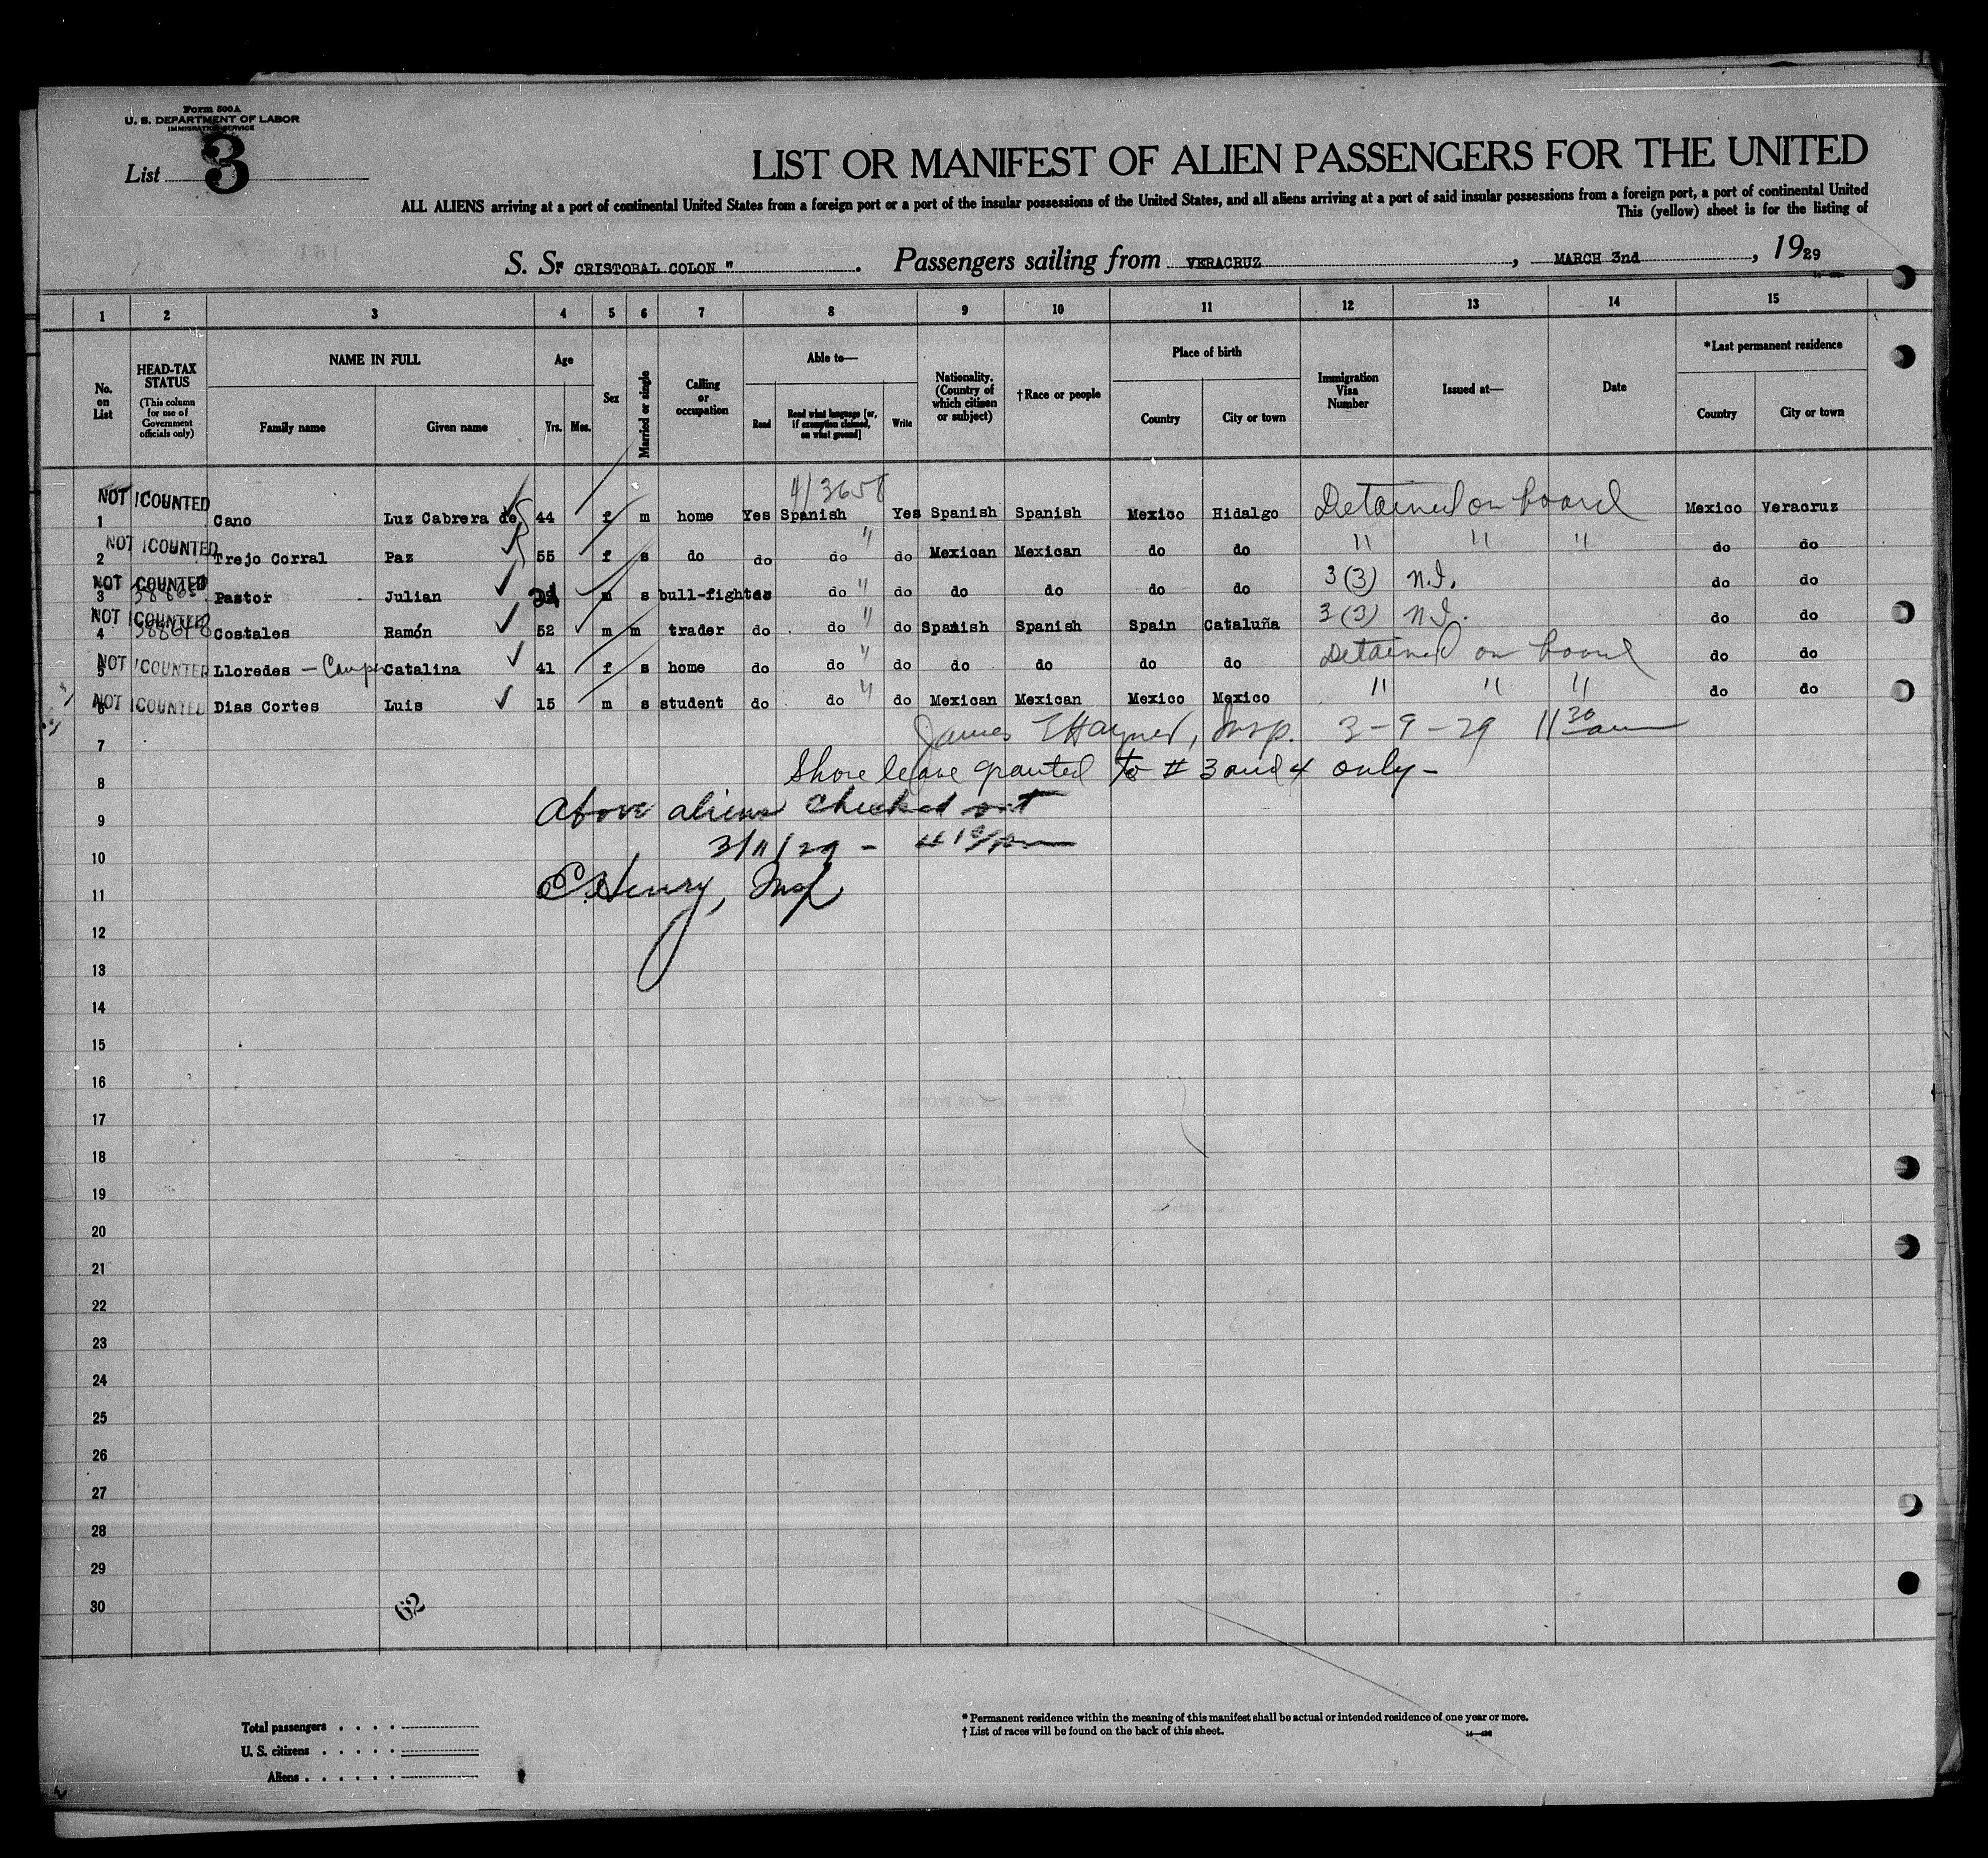 Form 500A
U. S. DEPARTMENT OF LABOR
IMMIGRATION SERVICE
List 3
LIST OR MANIFEST OF ALIEN PASSENGERS FOR THE UNITED
ALL ALIENS arriving at a port of continental United States from a foreign port or a port of the insular possessions of the United States, and all aliens arriving at a port of said insular possessions from a foreign port, a port of continental United
This (yellow) sheet is for the listing of
S. S. " CRISTOBAL COLON ". Passengers sailing from VERACRUZ, MARCH 3nd, 1929
1 2 3 4 5 6 7 8 9 10 11 12 13 14 15
No. on List
HEAD-TAX STATUS
(This column for use of Government officials only)
NAME IN FULL
Family name Given name
Age
Yrs. Mos.
Sex
Married or single
Calling or occupation
Able to—
Read Read what language [or, if exemption claimed, on what ground] Write
Nationality. (Country of which citizen or subject)
†Race or people
Place of birth
Country City or town
Immigration Visa Number
Issued at—
Date
*Last permanent residence
Country City or town
4/3658
1 NOT COUNTED Cano Luz Cabrera de 44 f m home Yes Spanish Yes Spanish Spanish Mexico Hidalgo Detained on board Mexico Veracruz
2 NOT COUNTED Trejo Corral Paz 55 f s do do do " do Mexican Mexican do do " " " do do
3 NOT COUNTED Pastor Julian m s bull-fighter do " do do do do do 3(3) N.I. do do
4 NOT COUNTED Costales Ramón 52 m m trader do do " do Spanish Spanish Spain Cataluña 3(3) N.I. do do
5 NOT COUNTED Lloredes — Catalina 41 f s home do do " do do do do do Detained on board do do
6 NOT COUNTED Dias Cortes Luis 15 m s student do do " do Mexican Mexican Mexico Mexico " " " do do
7 James Insp. 3-9-29 11 30 am
8 Shore leave granted to # 3 and 4 only-
9 Above aliens checked out
10 3/11/29 -
11 C. Henry, Insp
12
13
14
15
16
17
18
19
20
21
22
23
24
25
26
27
28
29
30
62
Total passengers
U. S. citizens
Aliens
* Permanent residence within the meaning of this manifest shall be actual or intended residence of one year or more.
† List of races will be found on the back of this sheet.